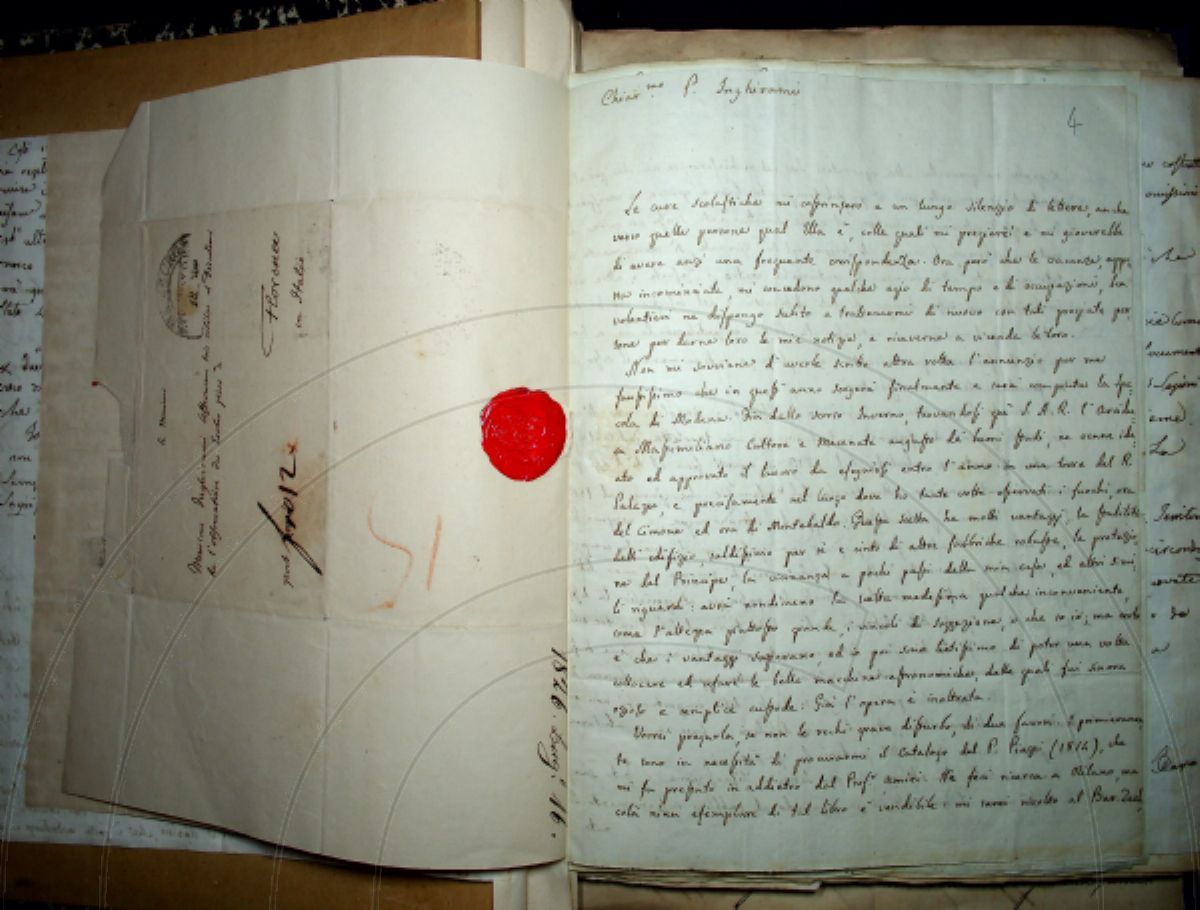 Chiar.mo P. Inghirami
4
Le cure scolastiche mi costrinsero a un lungo silenzio di lettere, anche
verso quelle persone qual Ella è, colle quali mi pregierei e mi gioverebbe
di avere anzi una frequente corrispondenza. Ora però che le vacanze, appe-
na incominciate, mi concedono qualche agio di tempo e di occupazioni, ben
volentieri ne dispongo subito a trattenermi di nuovo con tali pregiate per-
sone per darne loro le mie notizie, e riceverne a vicenda le loro.
Non mi sovviene d'averle scritto altra volta l'annunzio per me
faustissimo che in quest'anno sorgerà finalmente e sarà compiuta la Spe-
cola di Modena. Fin dallo scorso Inverno, trovandosi quì S. A. R. l'Arcidu-
ca Massimiliano Cultore e Mecenate augusto de' buoni studi, ne venne ide-
ato ed approvato il lavoro da eseguirsi entro l'anno in una torre del R.
Palazzo, e precisamente nel luogo dove ho tante volte osservati i fuochi, ora
del Cimone ed ora di Montebaldo. Questa scelta ha molti vantaggi, la stabilità
dell'edifizio, saldissimo per sè e cinto di altre fabbriche robuste, la protezio-
ne del Principe la vicinanza a pochi passi della mia casa, ed altri simi-
li riguardi: avrà nondimeno la scelta medesima qualche inconveniente,
come l'altezza piuttosto grande, i vincoli di soggezione, e che so io; ma certo
è che i vantaggi superano, ed io poi sono lietissimo di poter una volta
collocare ed usare le belle macchine astronomiche, delle quali fui sinora
ozioso e semplice custode. Già l'opera è inoltrata.
Vorrei pregarla, se non le rechi grave disturbo, di due favori. Primieramen-
te sono in necessità di procurarmi il Catalogo del P. Piazzi (1814), che
mi fu prestato in addietro dal Prof.r Amici. Ne feci ricerca a Milano, ma
colà niun esemplare di tal libro è vendibile: mi sarei rivolto al Bar. Zach,
Florence
en Italie
à Monsieur
Monsieur Inghirami Astronome
franco
15
1826. 16.